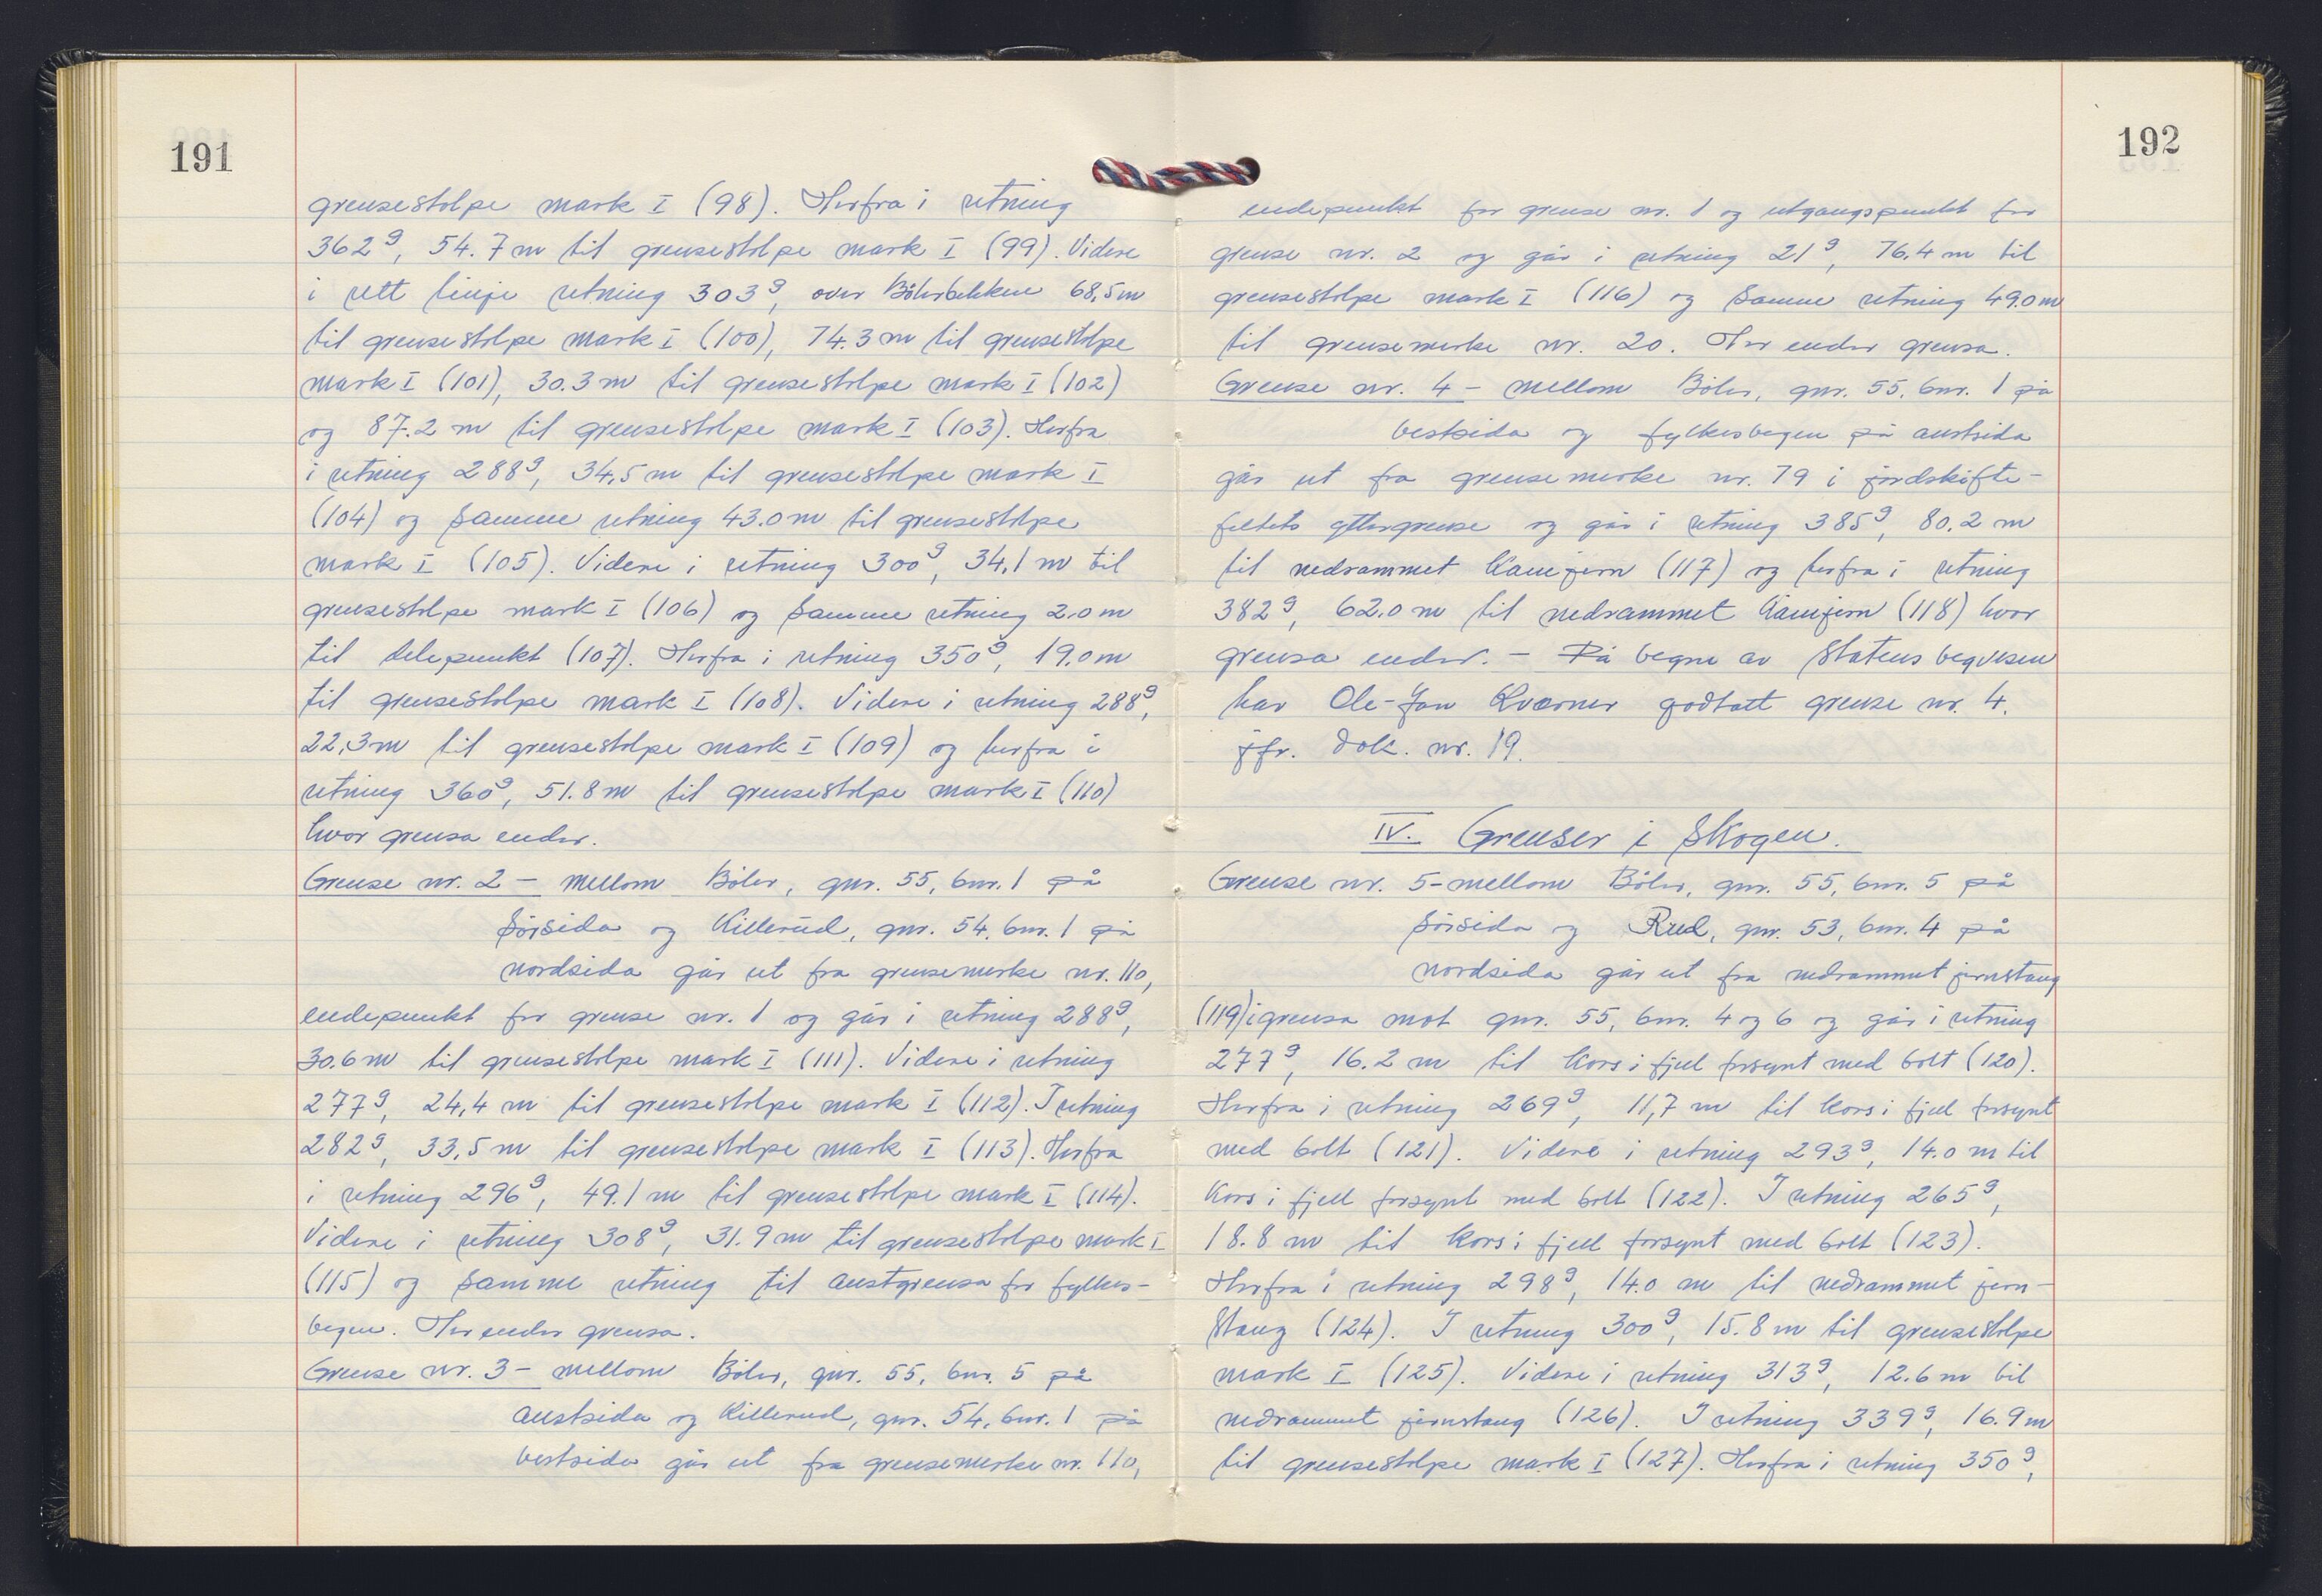 191
grensestolpe mark I (98). Herfra i retning
362ᵍ, 54.7 m til grensestolpe mark I (99). Videre
i rett linje retning 303ᵍ, over Bölerbekken 68,5 m
til grensestolpe mark I (100), 74.3 m til grensestolpe
mark I (101), 30.3 m til grensestolpe mark I (102)
og 87.2 m til grensestolpe mark I (103). Herfra
i retning 288ᵍ, 34,5 m til grensestolpe mark I
(104) og samme retning 43.0 m til grensestolpe
mark I (105). Videre i retning 300ᵍ, 34,1 m til
grensestolpe mark I (106) og samme retning 2.0 m
til delepunkt (107). Herfra i retning 350ᵍ, 19.0 m
til grensestolpe mark I (108). Videre i retning 288ᵍ,
22,3 m til grensestolpe mark I (109) og herfra i
retning 360ᵍ, 51.8 m til grensestolpe mark I (110)
hvor grensa ender.
Grense nr. 2 - mellom Böler, gnr. 55, bnr. 1 på
sörsida og Killerud, gnr. 54, bnr. 1 på
nordsida går ut fra grensemerke nr. 110,
endepunkt for grense nr. 1 og går i retning 288ᵍ,
30.6 m til grensestolpe mark I (111). Videre i retning
277ᵍ, 24,4 m til grensestolpe mark I (112). I retning
282ᵍ, 33,5 m til grensestolpe mark I (113). Herfra
i retning 296ᵍ, 49.1 m til grensestolpe mark I (114).
Videre i retning 308ᵍ, 31.9 m til grensestolpe mark I
(115) og samme retning til austgrensa for fylkes-
vegen. Her ender grensa.
Grense nr. 3 - mellom Böler, gnr. 55, bnr. 5 på
austsida og Killerud, gnr. 54, bnr. 1 på
vestsida går ut fra grensemerke nr. 110,
192
endepunkt for grense nr. 1 og utgangspunkt for
grense nr. 2 og går i retning 21ᵍ, 76.4 m til
grensestolpe mark I (116) og samme retning 49.0 m
til grensemerke nr. 20. Her ender grensa.
Grense nr. 4 - mellom Böler, gnr. 55, bnr. 1 på
vestsida og fylkesvegen på austsida
går ut fra grensemerke nr. 79 i jordskifte-
feltets yttergrense og går i retning 385ᵍ, 80.2 m
til nedrammet kamjern (117) og herfra i retning
382ᵍ, 62.0 m til nedrammet kamjern (118) hvor
grensa ender. - På vegne av Statens vegvesen
har Ole-Jan Kværner godtatt grense nr. 4.
jfr. dok. nr. 19.
IV. Grenser i skogen.
Grense nr. 5 - mellom Böler, gnr. 55, bnr. 5 på
sörsida og Rud, gnr. 53, bnr. 4 på
nordsida går ut fra nedrammet jernstang
(119) i grensa mot gnr. 55, bnr. 4 og 6 og går i retning
277ᵍ, 16.2 m til kors i fjell forsynt med bolt (120).
Herfra i retning 269ᵍ, 11,7 m til kors i fjell forsynt
med bolt (121). Videre i retning 293ᵍ, 14.0 m til
kors i fjell forsynt med bolt (122). I retning 265ᵍ,
18.8 m til kors i fjell forsynt med bolt (123).
Herfra i retning 298ᵍ, 14.0 m til nedrammet jern-
stang (124). I retning 300ᵍ, 15.8 m til grensestolpe
mark I (125). Videre i retning 313ᵍ, 12.6 m til
nedrammet jernstang (126). I retning 339ᵍ, 16.9 m
til grensestolpe mark I (127). Herfra i retning 350ᵍ,